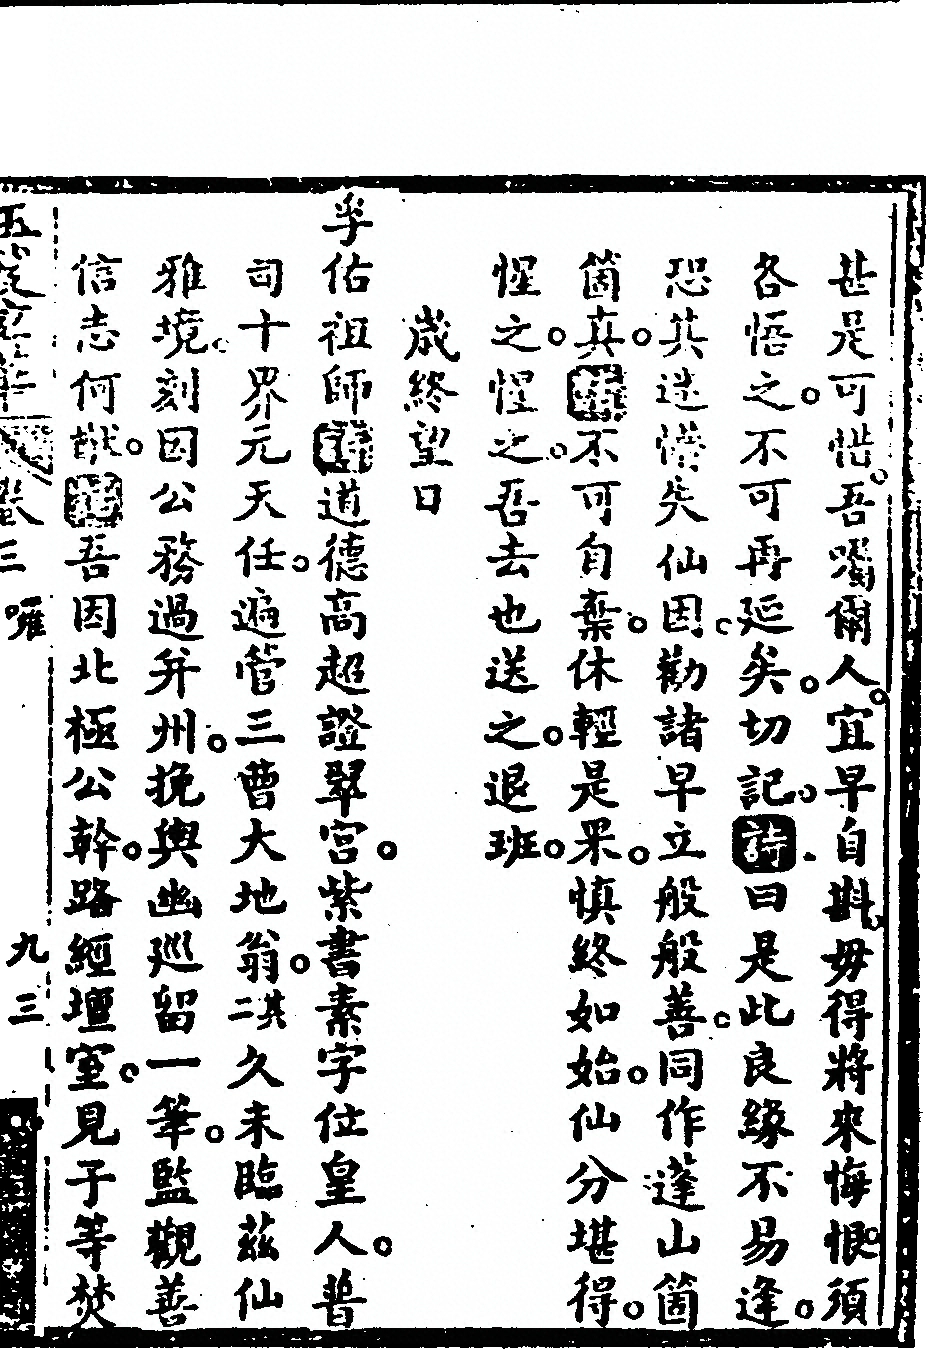 甚是可惜吾囑爾人宜早自斟毋得將來悔恨須
各悟之不可再延矣切記詩曰是此良緣不易逢
恐其迷悟矣仙因勸諸早立般般善同作蓬山箇
箇真 不可自棄休輕是果慎終如始仙分堪得
惺之惺之吾去也送之退班
歲終望日
孚佑祖師 道德高超證翠宮紫書素字位皇人普
司十界元天任遍管三曹大地翁其二久未臨茲仙
雅境刻因公務過并州挽輿幽巡留一筆監觀善
信志何猷 吾因北極公幹路經壇室見子等焚
三 囉
九三